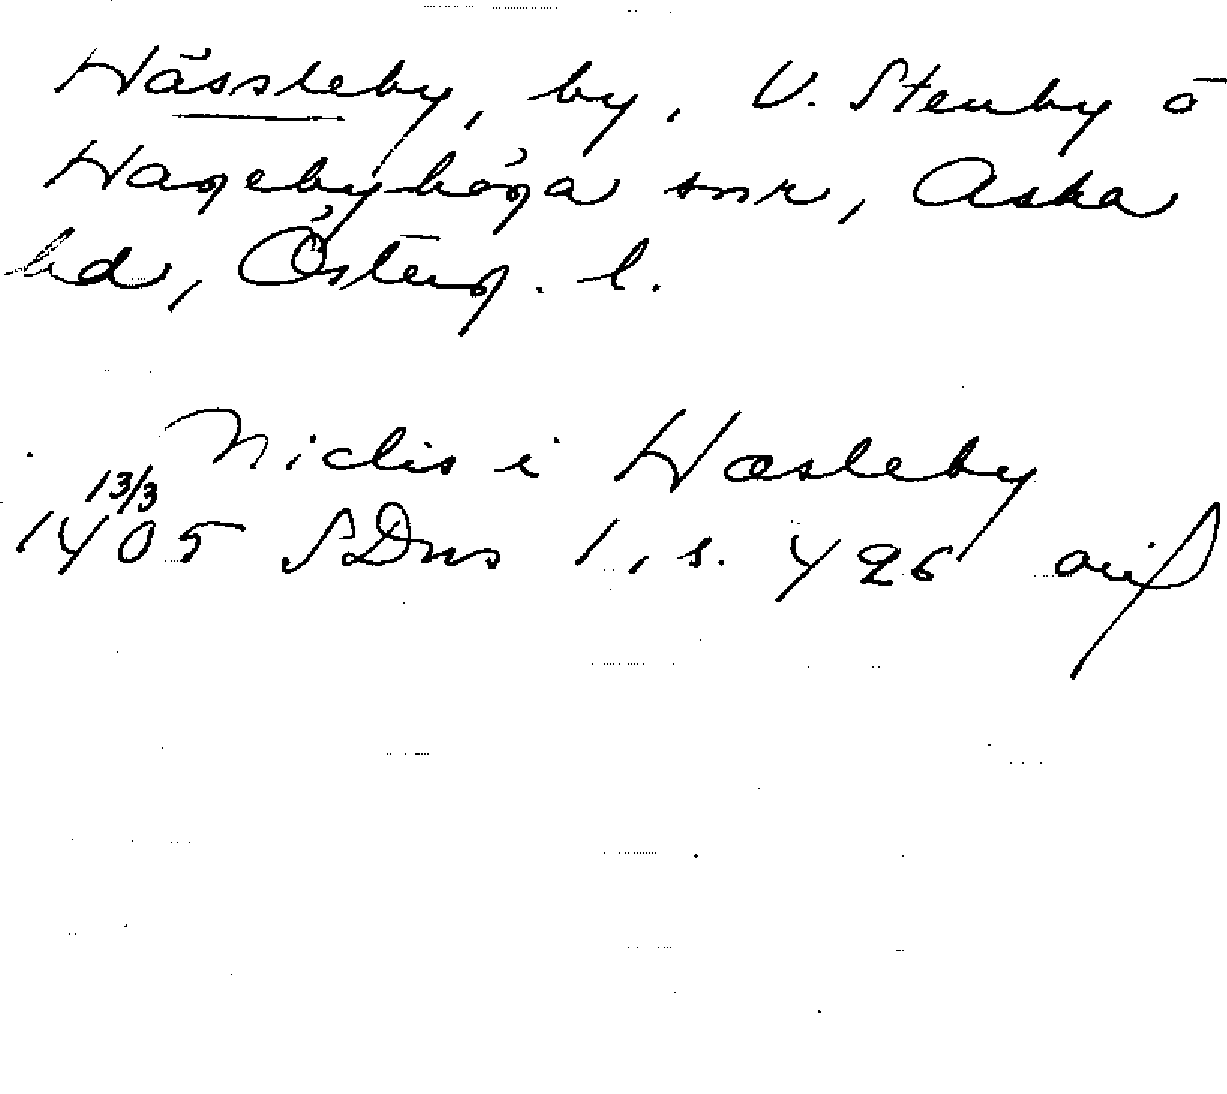 Hässleby, by, V. Stenby o
Hagebyhöga snr, Aska
hd, Österg. l.
Niclis i Hæsleby
13/3
1405 SDns 1, s. 426 avs